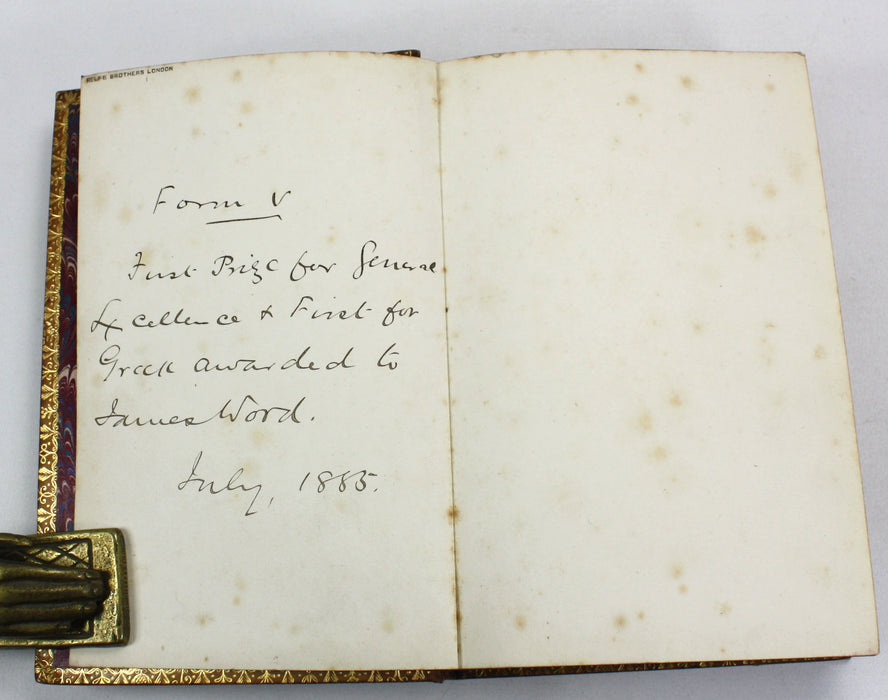 RELFE BROTHERS LONDON
Form V
First Prize for General
Excellence & First for
Greek awarded to
James Word.
July, 1885.